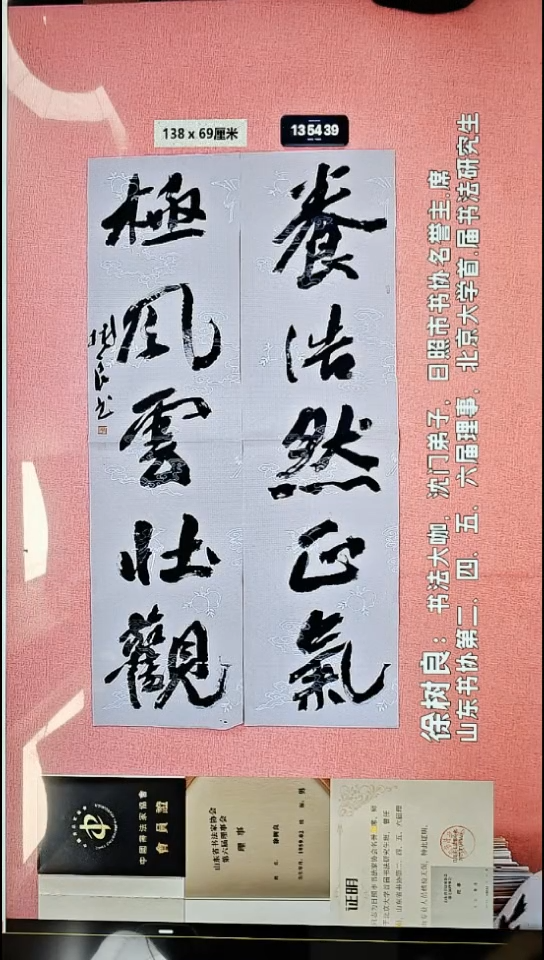 138 x 69厘米
13 54 39
養浩然正氣
極風雲壯觀
樹良书
徐树良：书法大咖，沈门弟子，日照市书协名誉主席
山东书协第二．四．五．六届理事，北京大学首届书法研究生
中國書法家協會
會員證
山东省书法家协会
第六届理事会
理事
证明